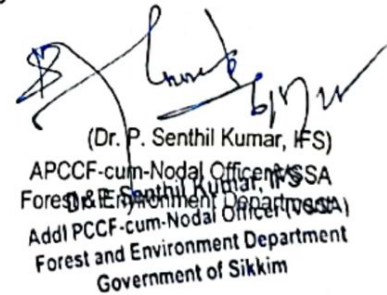 (Dr. P. Senthil Kumar, IFS)
APCCF-cum-Nodal Officer VSSA
Forest & Environment Department
Dr. P. Senthil Kumar, IFS
Addl PCCF-cum-Nodal Officer (VSSA)
Forest and Environment Department
Government of Sikkim